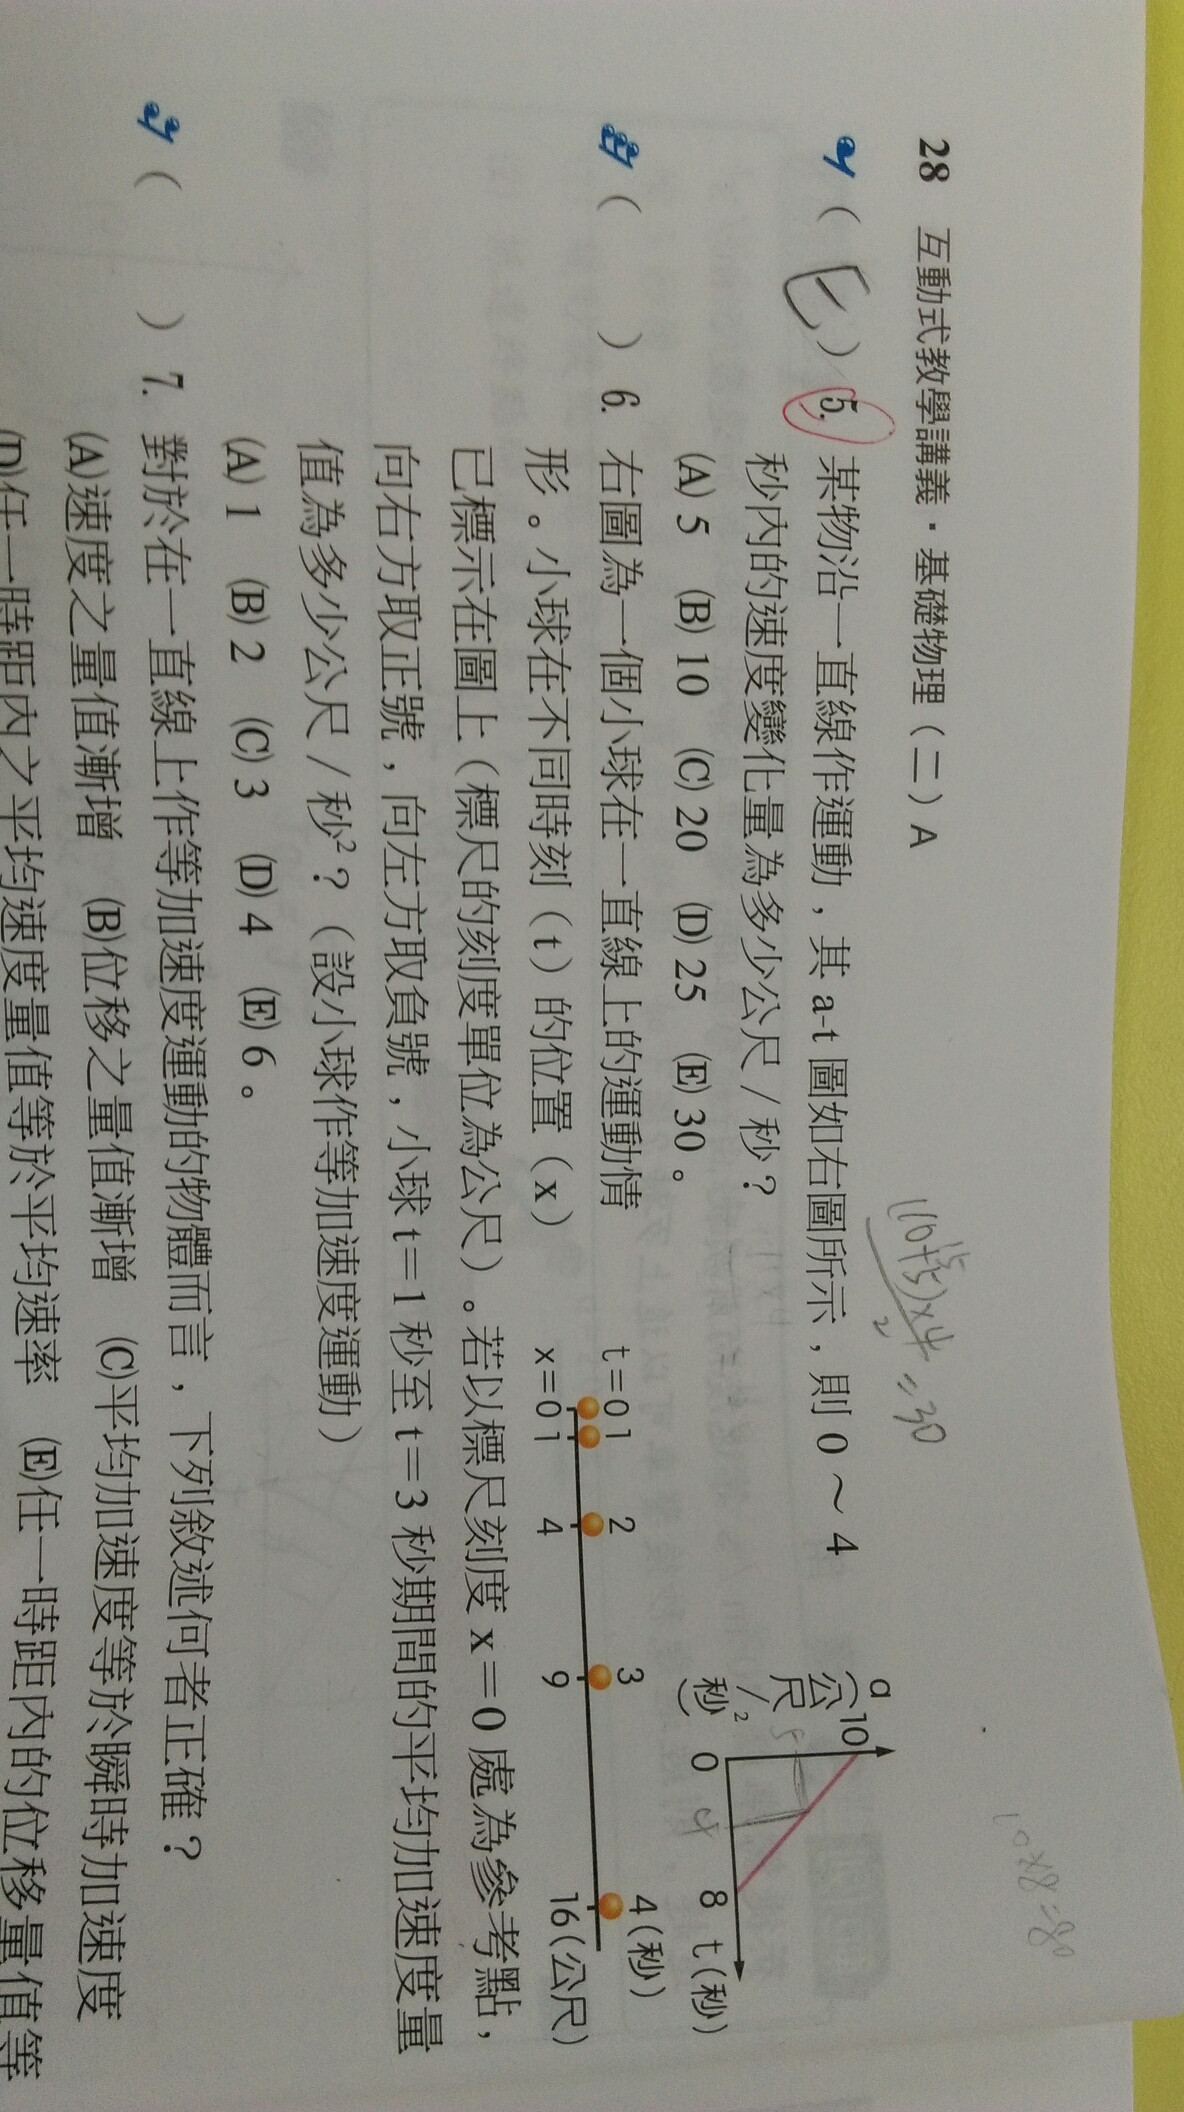 28 互動式教學講義．基礎物理（二）A
(10+5)×4
2
=30
8×01
=80
（E）5. 某物沿一直線作運動，其 a-t 圖如右圖所示，則 0～4
秒內的速度變化量為多少公尺／秒？
(A) 5 (B) 10 (C) 20 (D) 25 (E) 30。
a
（公尺／秒²）
10
5
0
4
8
t（秒）
（ ）6. 右圖為一個小球在一直線上的運動情
形。小球在不同時刻（t）的位置（x）
已標示在圖上（標尺的刻度單位為公尺）。若以標尺刻度 x＝0 處為參考點，
向右方取正號，向左方取負號，小球 t＝1 秒至 t＝3 秒期間的平均加速度量
值為多少公尺／秒²？（設小球作等加速度運動）
(A) 1 (B) 2 (C) 3 (D) 4 (E) 6。
t＝0 1 2 3 4（秒）
x＝0 1 4 9 16（公尺）
（ ）7. 對於在一直線上作等加速度運動的物體而言，下列敘述何者正確？
(A)速度之量值漸增 (B)位移之量值漸增 (C)平均加速度等於瞬時加速度
(D)任一時距內之平均速度量值等於平均速率 (E)任一時距內的位移量值等